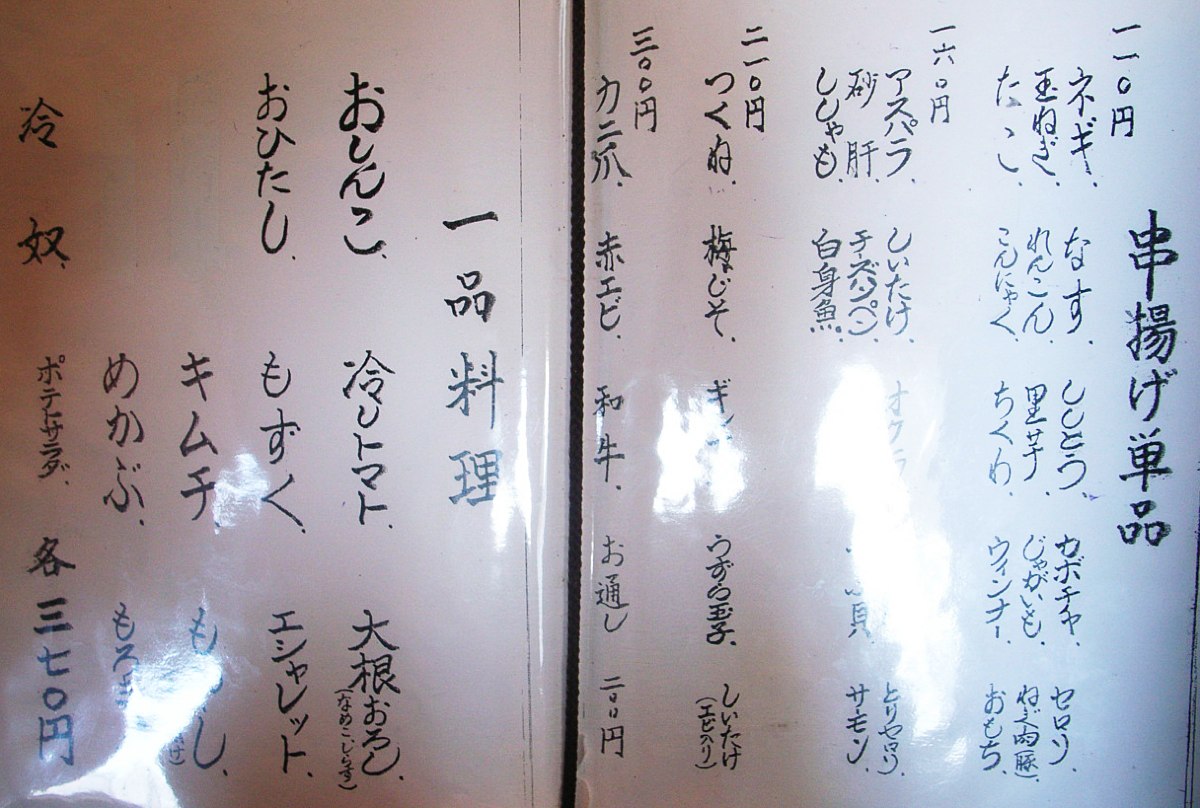 串揚げ単品
一一〇円
ネギ、なす、ししとう、カボチャ、セロリ、
玉ねぎ、れんこん、里芋、じゃがいも、ねぎ肉(豚)、
たこ、こんにゃく、ちくわ、ウィンナー、おもち、
一六〇円
アスパラ、しいたけ、オクラ とりセロリ、
砂肝、チーズハンペン、貝、サーモン、
ししゃも、白身魚、
二一〇円
つくね、梅じそ、うずら玉子、しいたけ(エビ入り)
三〇〇円
カニ爪、赤エビ、和牛、お通し 二〇〇円
一品料理
おしんこ、冷しトマト、大根おろし(なめこ、じらす)、
おひたし、もずく、エシャレット、
キムチ、
めかぶ、
冷奴、ポテトサラダ、各三七〇円